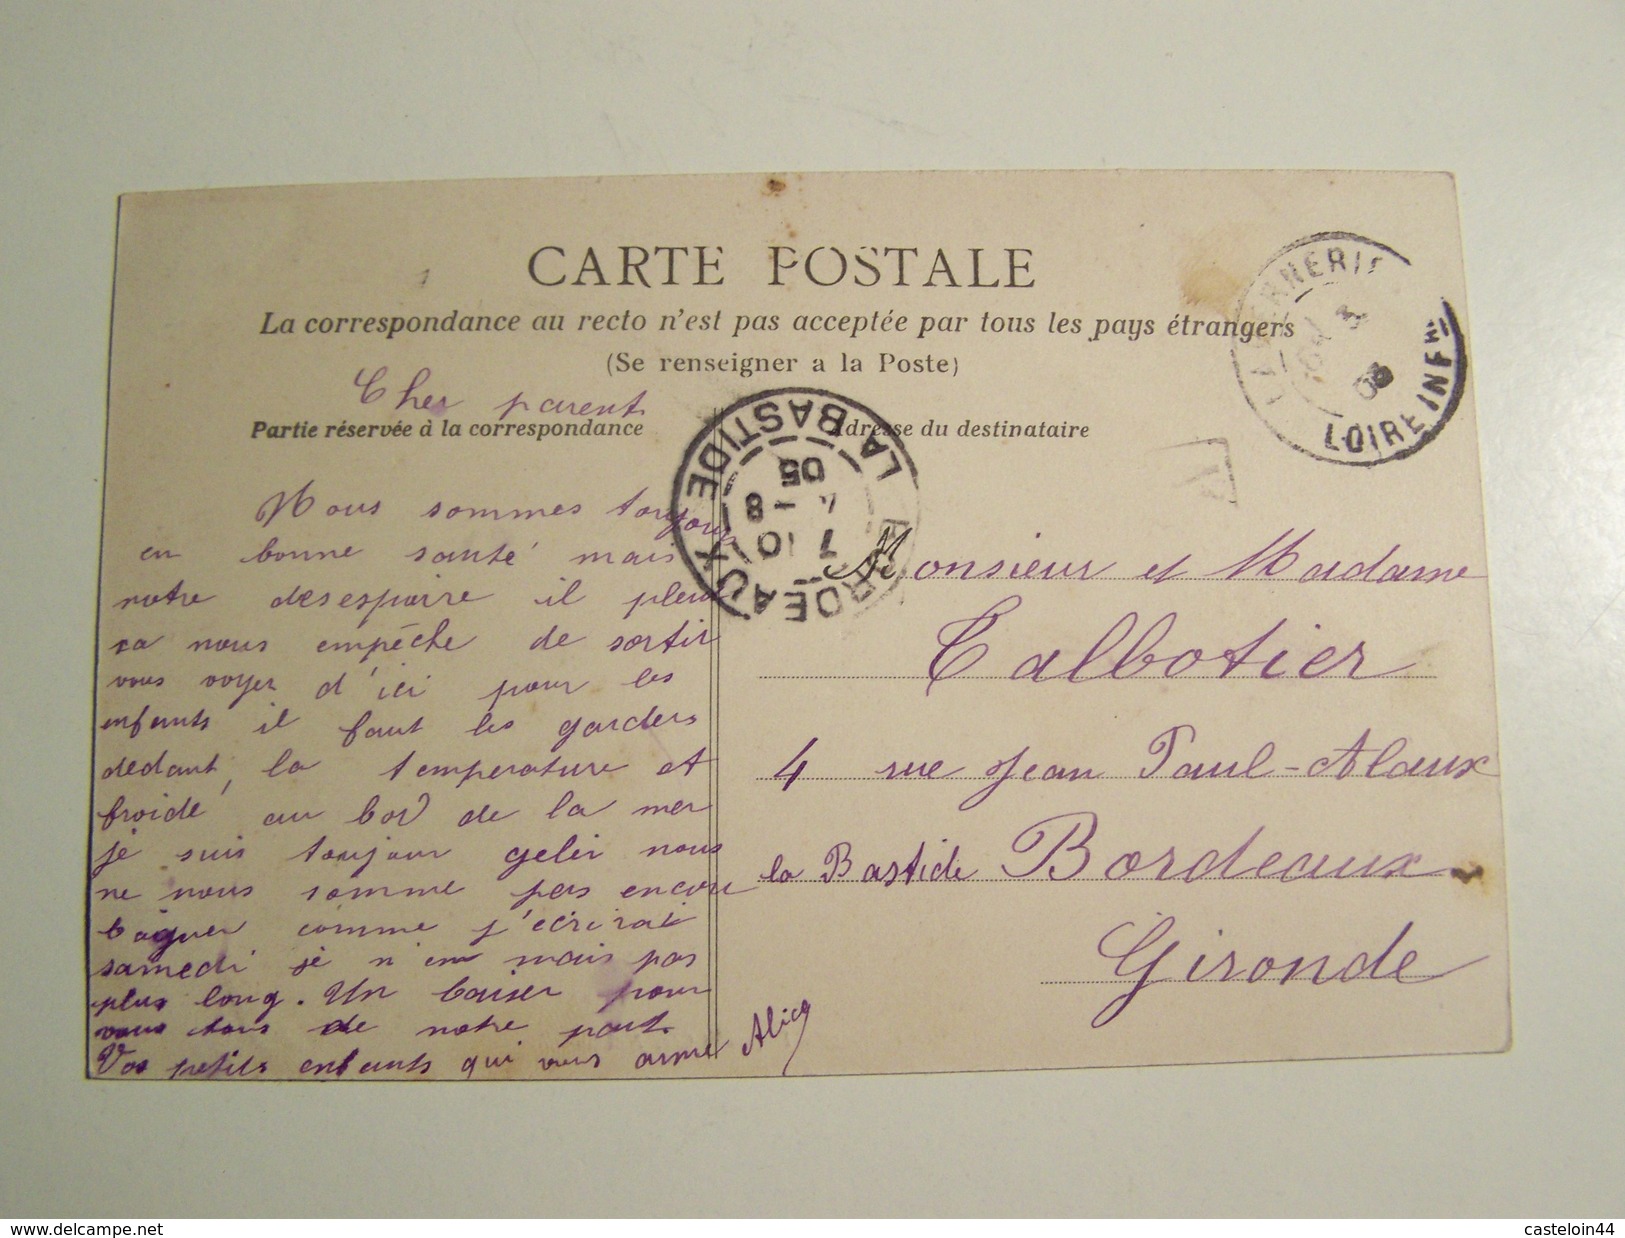 CARTE POSTALE
La correspondance au recto n'est pas acceptée par tous les pays étrangers
(Se renseigner a la Poste)
Cher parent
Partie réservée à la correspondance
Nous sommes toujour
en bonne santé mais
notre desespoire il pleu
ca nous empéche de sortir
vous voyer d'ici pour les
enfants il faut les garders
dedant, la temperature et
froide au bord de la mer
je suis toujour geler nous
ne nous somme pas encore
baigner comme j'écrirai
samedi je n'em mais pas
plus long. Un baiser pour
vous tous de notre part.
Vos petits enfants qui vous aime Alice
Adresse du destinataire
Monsieur et Madame
Talbotier
4 rue Jean Paul-Alaux
la Bastide Bordeaux
Gironde
BORDEAUX
LA BASTIDE
7 10
8
05
LOIRE INFRE
www.delcampe.net
casteloin44